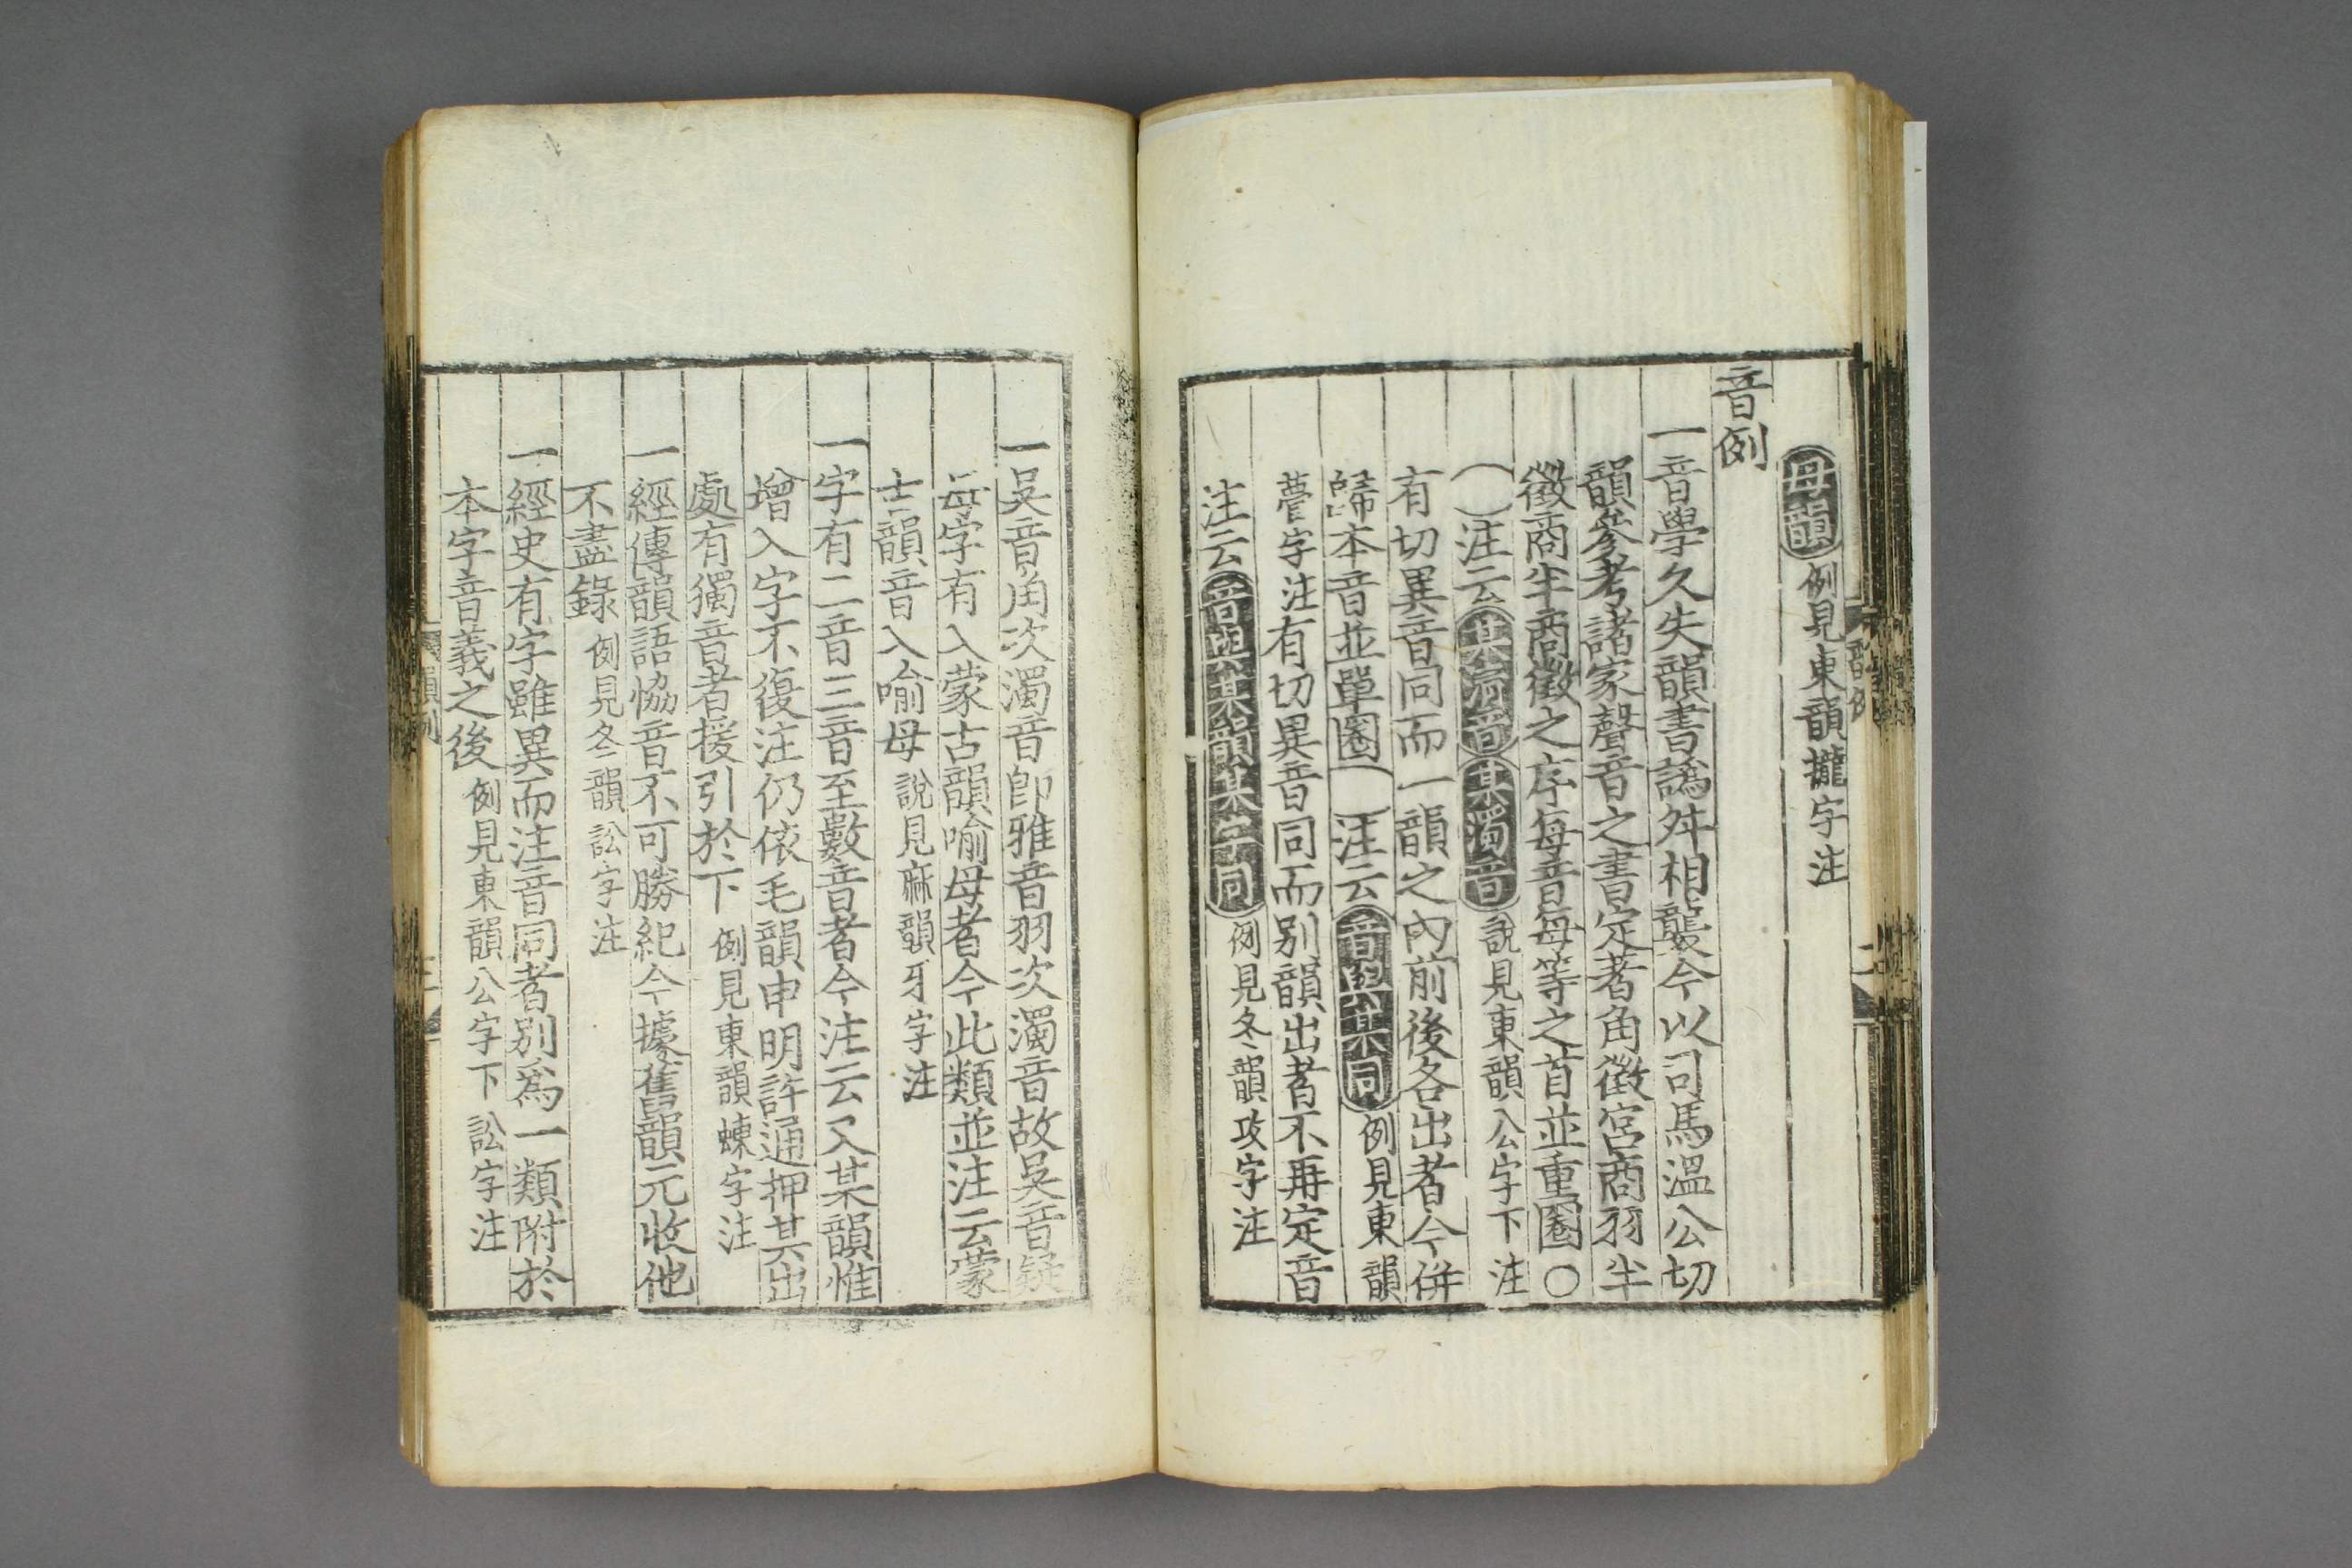 母韻例見東韻攏字注
音例
一音學久失韻書譌舛相襲今以司馬溫公切
韻參考諸家聲音之書定著角徵宮商羽半
徵商半商徵之序每音每等之首並重圈〇
注云某清音某濁音說見東韻公字下注
有切異音同而一韻之內前後各出者今併
歸本音並單圈注云音與某同例見東韻
瞢字注有切異音同而別韻出者不再定音
注云音與某韻某字同例見冬韻攻字注
一吳音角次濁音卽雅音羽次濁音故吳音疑
母字有入蒙古韻喻母者今此類並注云蒙
古韻音入喻母說見麻韻牙字注
一字有二音三音至數音者今注云又某韻惟
增入字不復注仍依毛韻申明許通押其出
處有獨音者援引於下例見東韻蝀字注
一經傳韻語協音不可勝紀今據舊韻元收他
不盡錄例見冬韻訟字注
一經史有字雖異而注音同者別爲一類附於
本字音義之後例見東韻公字下訟字注